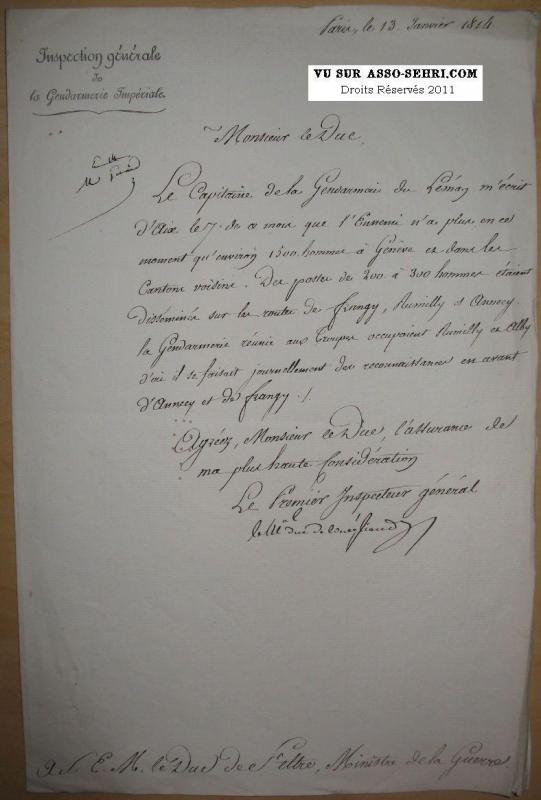 Paris, le 13. Janvier 1814
Inspection générale
de
la Gendarmerie Impériale.
VU SUR ASSO-SEHRI.COM
Droits Réservés 2011
Monsieur le Duc,
Le Capitaine de la Gendarmerie du Léman m'écrit
d'Aix le 7. de ce mois que l'Ennemi n'a plus en ce
moment qu'environ 1500 hommes à Genève et dans les
Cantons voisins. Des postes de 200 à 300 hommes étaient
disséminés sur les routes de frangy, Rumilly et Annecy.
la Gendarmerie réunie aux troupes occupaient Rumilly et Alby
d'où il se faisait journellement des reconnaissances en avant
d'Annecy et de frangy ./.
Agréez, Monsieur le Duc, l'assurance de
ma plus haute Considération
Le Premier Inspecteur général
le Mal duc de
A S. E. M. le Duc de Feltre, Ministre de la Guerre